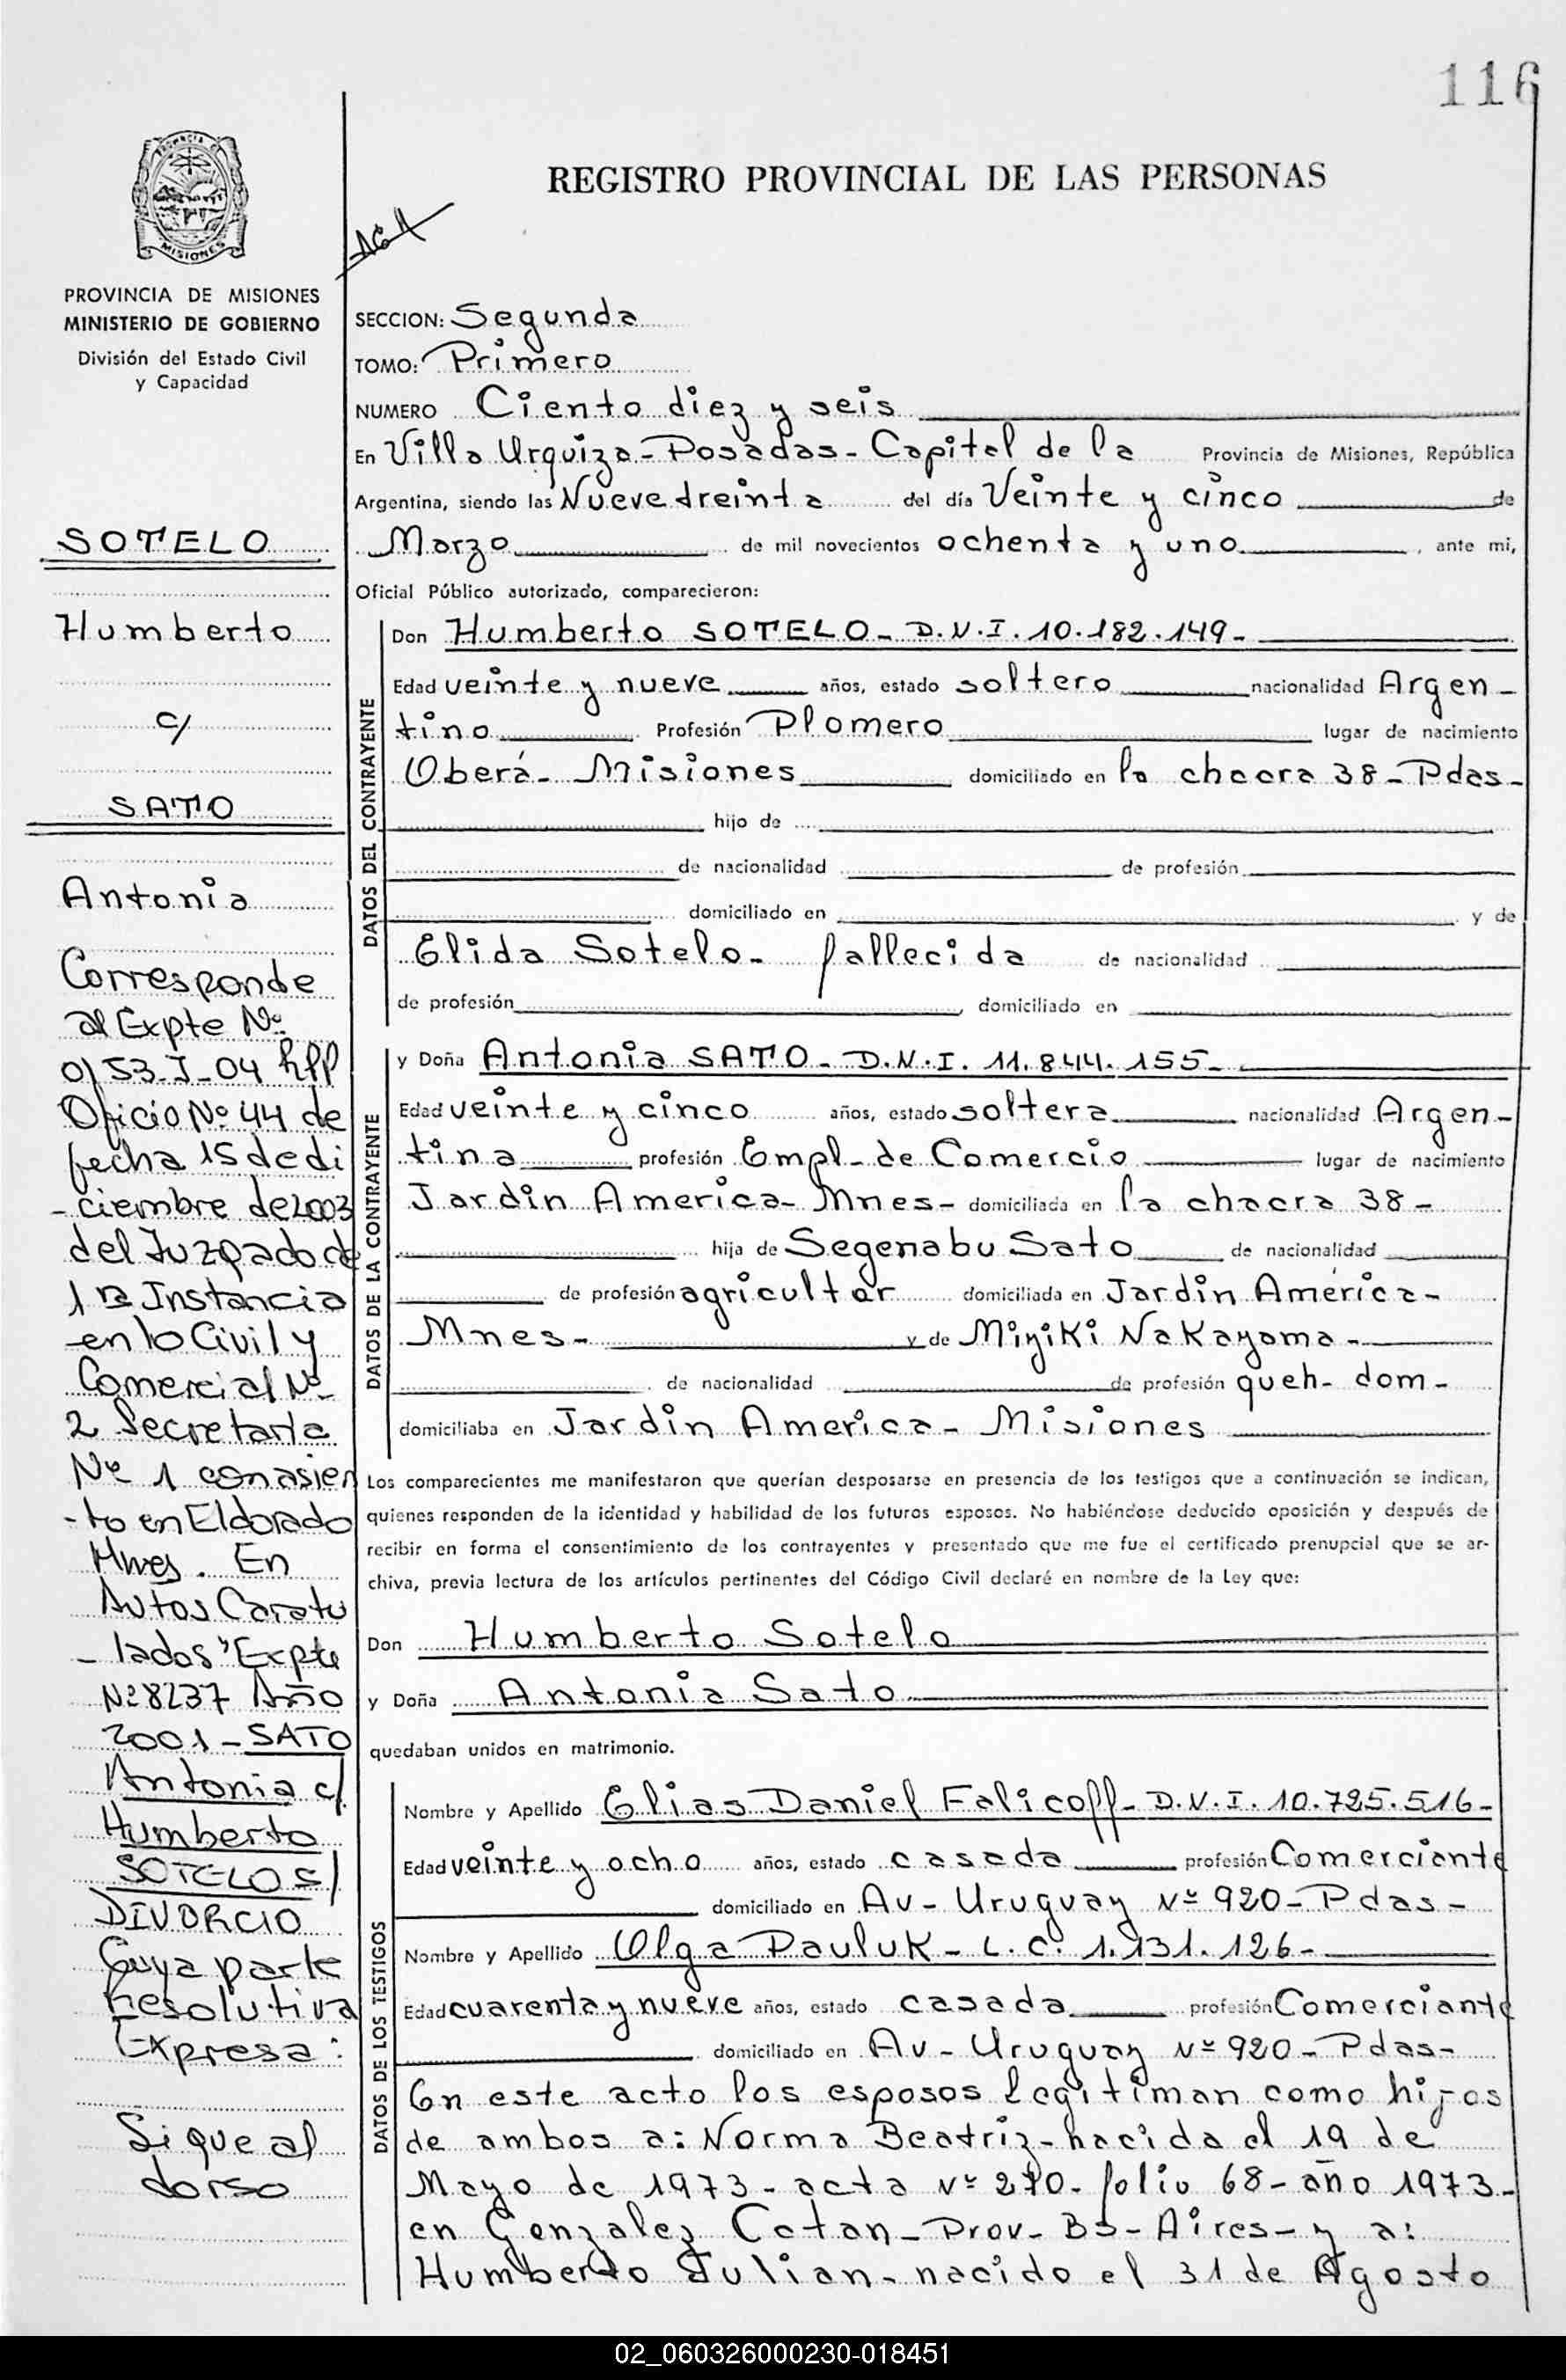 116
REGISTRO PROVINCIAL DE LAS PERSONAS
PROVINCIA DE MISIONES
MINISTERIO DE GOBIERNO
División del Estado Civil
y Capacidad
SOTELO
Humberto
c/
SATO
Antonia
Corresponde
al Expte Nº
53-J-04
Oficio Nº 44 de
fecha 15 de di
-ciembre de 2003
del Juzgado de
1ra Instancia
en lo Civil y
Comercial Nº
2 Secretaria
Nº 1 con asien
-to en Eldorado
Mnes. En
Autos Caratu
-lados "Expte
Nº 8237 Año
2001 - SATO
Antonia c/
Humberto
SOTELO S/
DIVORCIO
Cuya parte
resolutiva
Expresa:
Sigue al
dorso
SECCION: Segunda
TOMO: Primero
NUMERO Ciento diez y seis
En Villa Urquiza - Posadas - Capital de la Provincia de Misiones, República
Argentina, siendo las Nueve treinta del día Veinte y cinco de
Marzo de mil novecientos ochenta y uno, ante mi,
Oficial Público autorizado, comparecieron:
DATOS DEL CONTRAYENTE
Don Humberto SOTELO - D.N.I. 10.182.149-
Edad veinte y nueve años, estado soltero nacionalidad Argen-
tino Profesión Plomero lugar de nacimiento
Oberá - Misiones domiciliado en la chacra 38 - Pdas-
hijo de
de nacionalidad de profesión
domiciliado en y de
Elida Sotelo - fallecida de nacionalidad
de profesión, domiciliado en
DATOS DE LA CONTRAYENTE
y Doña Antonia SATO - D.N.I. 11.844.155-
Edad veinte y cinco años, estado soltera nacionalidad Argen-
tina profesión Empl- de Comercio lugar de nacimiento
Jardin America - Mnes - domiciliada en la chacra 38 -
hija de Segenabu Sato de nacionalidad
de profesión agricultor domiciliada en Jardin América-
Mnes- y de Miyiki Nakayama -
de nacionalidad de profesión queh- dom-
domiciliaba en Jardin America - Misiones
Los comparecientes me manifestaron que querían desposarse en presencia de los testigos que a continuación se indican,
quienes responden de la identidad y habilidad de los futuros esposos. No habiéndose deducido oposición y después de
recibir en forma el consentimiento de los contrayentes y presentado que me fue el certificado prenupcial que se ar-
chiva, previa lectura de los artículos pertinentes del Código Civil declaré en nombre de la Ley que:
Don Humberto Sotelo
y Doña Antonia Sato
quedaban unidos en matrimonio.
DATOS DE LOS TESTIGOS
Nombre y Apellido Elias Daniel Falicoff - D.N.I. 10.725.516-
Edad veinte y ocho años, estado casado profesión Comerciante
domiciliado en Av- Uruguay Nº 920 - Pdas -
Nombre y Apellido Olga Pauluk - L.C. 1.131.126-
Edad cuarenta y nueve años, estado casada profesión Comerciante
domiciliado en Av - Uruguay Nº 920 - Pdas-
En este acto los esposos legitiman como hijos
de ambos a: Norma Beatriz - nacida el 19 de
Mayo de 1973 - acta Nº 270 - folio 68 - año 1973 -
en Gonzalez Catan - Prov- Bs- Aires - y a:
Humberto Julian - nacido el 31 de Agosto
02_060326000230-018451